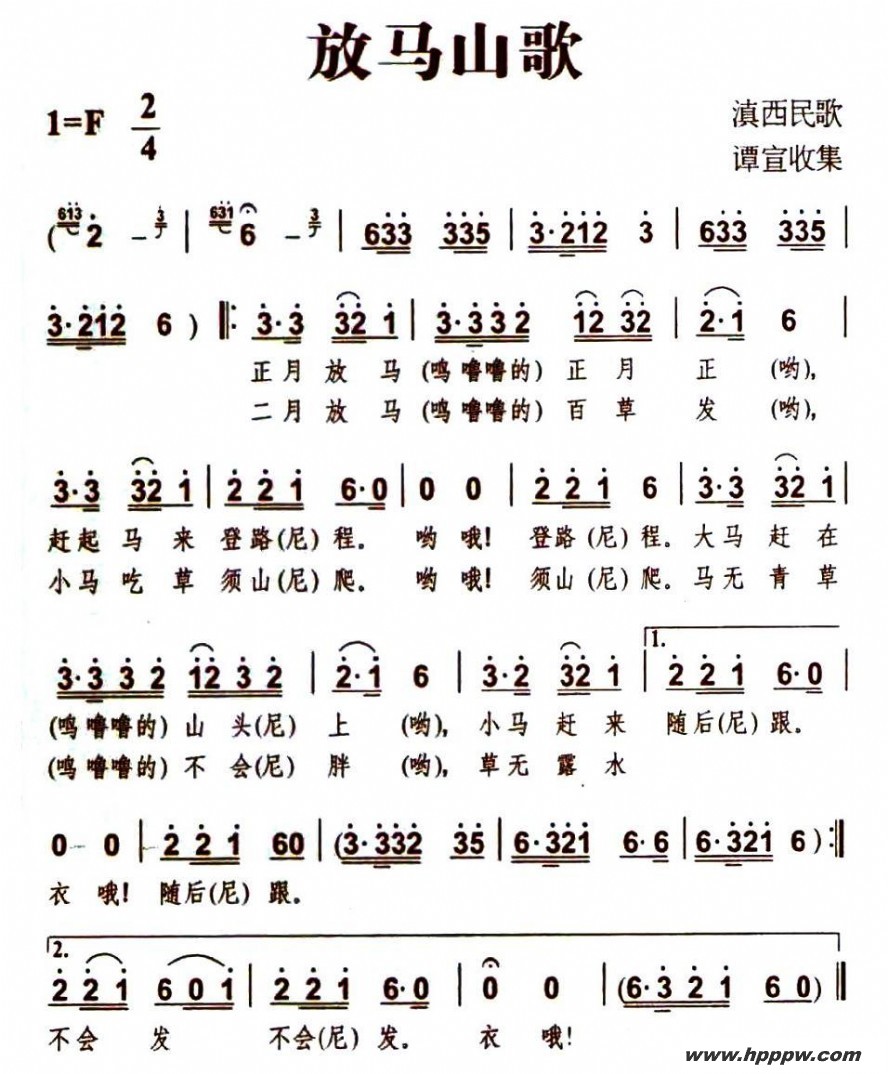 放马山歌
1=F 2/4
滇西民歌
谭宣收集
(613 2 – 3 | 631 6 – 3 | 633 335 | 3·212 3 | 633 335 |
3·212 6 ) ‖: 3·3 32 1 | 3·3 3 2 12 32 | 2·1 6 |
正月 放 马 (呜 噜噜的) 正 月 正 (哟),
二月 放 马 (呜 噜噜的) 百 草 发 (哟),
3·3 32 1 | 2 2 1 6·0 | 0 0 | 2 2 1 6 | 3·3 32 1 |
赶起 马 来 登路(尼) 程。 哟 哦! 登路 (尼) 程。 大马 赶 在
小马 吃 草 须山(尼) 爬。 哟 哦! 须山 (尼) 爬。 马无 青 草
3·3 3 2 12 3 2 | 2·1 6 | 3·2 32 1 | 1. 2 2 1 6·0 |
(呜 噜噜的) 山 头(尼) 上 (哟), 小马 赶 来 随后(尼) 跟。
(呜 噜噜的) 不 会(尼) 胖 (哟), 草无 露 水
0 0 | 2 2 1 60 | (3·332 35 | 6·321 6·6 | 6·321 6 ) :‖
衣 哦! 随后(尼) 跟。
2. 2 2 1 6 0 1 | 2 2 1 6·0 | 0 0 | (6·3 2 1 6 0 ) ‖
不会 发 不会(尼) 发。 衣 哦!
www.hpppw.com